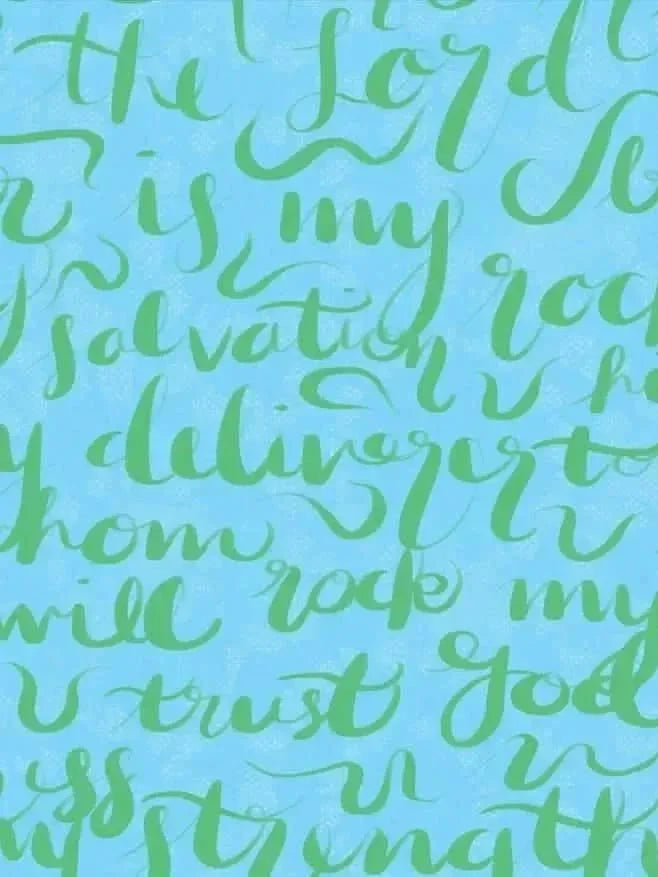 the Lord
is my
rock
salvation
deliverer to
whom
will rock my
trust God
my strength